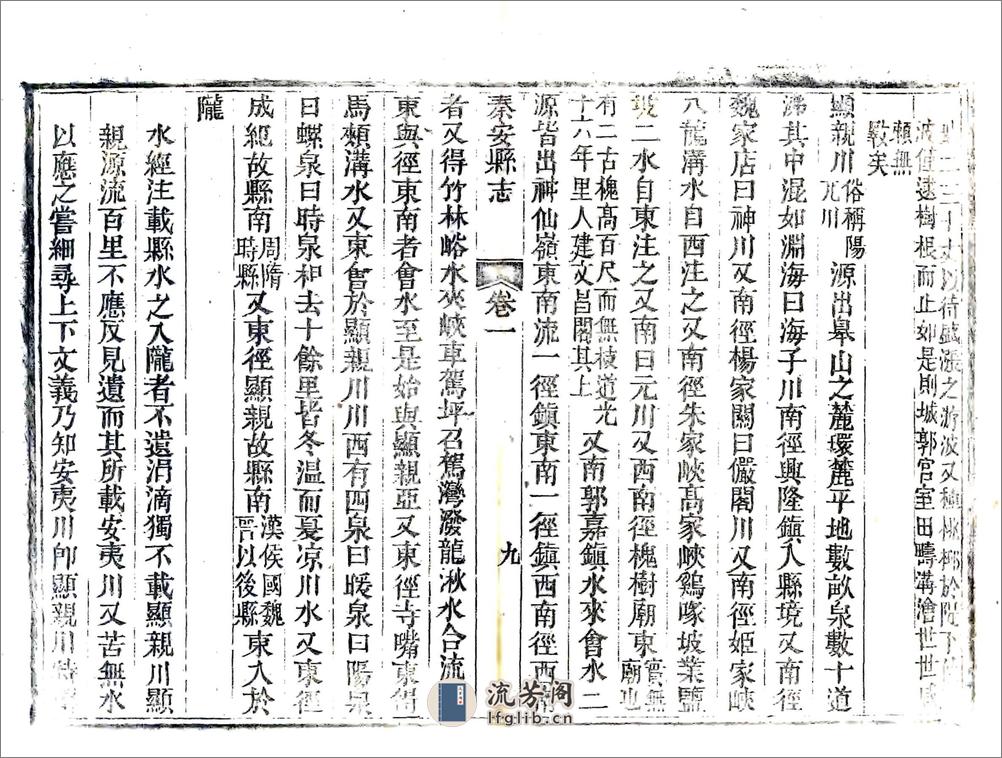 二三十丈以待盛漲之游波又種桃柳於隄下
波僅逮樹根而止如是則城郭官室田疇溝滄世世
賴無
斁矣
顯親川俗稱陽兀川源出皋山之麓環麓平地數畝泉數十道
沸其中混如淵海曰海子川南徑興隆鎮入縣境又南徑
魏家店曰神川又南徑楊家關曰儼閣川又南徑姬家峽
八龍溝水自西注之又南徑朱家峽高家峽鷄啄坡業鹽
坡二水自東注之又南曰元川又西南徑槐樹廟東實無廟也
有二古槐高百尺而無枝道光十六年里人建文昌閣其上又南郭嘉鎮水來會水二
源皆出神仙嶺東南流一徑鎮東南一徑鎮西南徑西
秦安縣志 卷一 九
者又得竹林峪水夾峽車駕坪召駕灣潑龍湫水合流
東與徑東南者會水至是始與顯親亞又東徑寺嘴東得
馬頰溝水又東會於顯親川川西有四泉曰暖泉曰陽泉
曰螺泉曰時泉相去十餘里皆冬温而夏凉川水又東徑
成紀故縣南周隋時縣又東徑顯親故縣南漢侯國魏晋以後縣東入於
隴
水經注載縣水之入隴者不遺涓滴獨不載顯親川顯
親源流百里不應反見遺而其所載安夷川又苦無水
以應之嘗細尋上下文義乃知安夷川卽顯親川
流芳阁
lfglib.cn